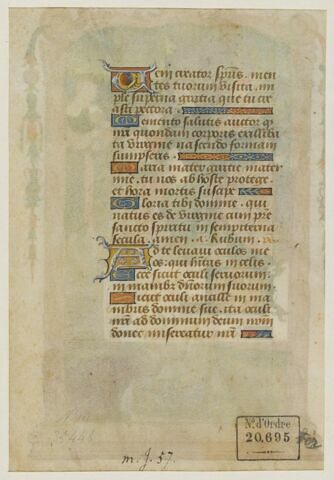 Veni creator spūs. men
tes tuorum visita. im
ple superna gratia que tu cre
asti pectora.
Memento salutis auctor q̄
nr̄i quondam corporis ex illiba
ta virgine nascendo formam
sumpseris.
Maria mater gratie mater
mie. tu nos ab hoste protege
et hora mortis suscipe
Gloria tibi domine. qui
natus es de virgine cum pre
sancto spiritu in sempiterna
secula. amen. a. Rubum.
Ad te levavi oculos me
os. qui hitas in celis.
Ecce sicut oculi servorum.
in manibz dn̄orum suorum.
Sicut oculi ancille in ma
nibus domine sue. ita oculi
nr̄i ad dominum deum nr̄m
donec misereatur nr̄i
No. d'Ordre
20.695
m. J. 57.